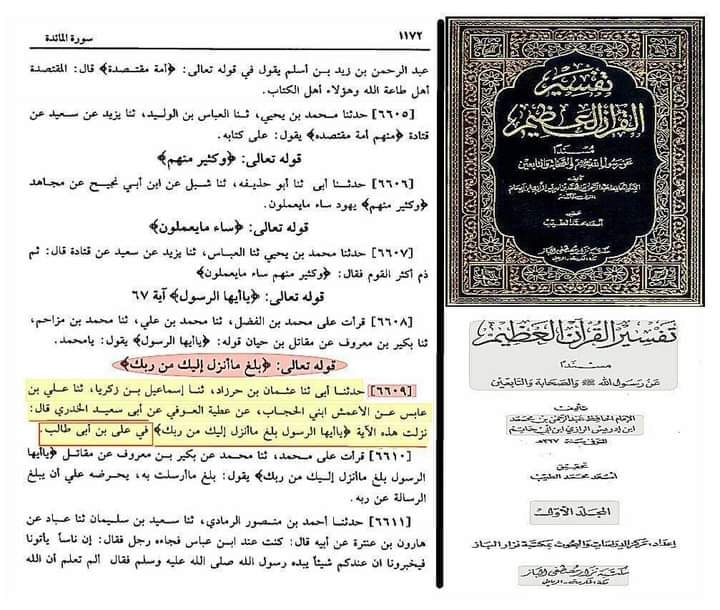 ١١٧٢
سورة المائدة
عبد الرحمن بن زيد بن أسلم يقول في قوله تعالى: ﴿أمة مقتصدة﴾ قال: المقتصدة
أهل طاعة الله وهؤلاء أهل الكتاب.
[٦٦٠٥] حدثنا محمد بن يحيى، ثنا العباس بن الوليد، ثنا يزيد عن سعيد عن
قتادة ﴿منهم أمة مقتصده﴾ يقول: على كتابه.
قوله تعالى: ﴿وكثير منهم﴾
[٦٦٠٦] حدثنا أبى ثنا أبو حذيفه، ثنا شبل عن ابن أبي نجيح عن مجاهد
﴿وكثير منهم﴾ يهود ساء مايعملون.
قوله تعالى: ﴿ساء مايعملون﴾
[٦٦٠٧] حدثنا محمد بن يحيى ثنا العباس، ثنا يزيد عن سعيد عن قتادة قال: ثم
ذم اكثر القوم فقال: ﴿وكثير منهم ساء مايعملون﴾
قوله تعالى: ﴿ياأيها الرسول﴾ آية ٦٧
[٦٦٠٨] قرأت على محمد بن الفضل، ثنا محمد بن علي، ثنا محمد بن مزاحم،
ثنا بكير بن معروف عن مقاتل بن حيان قوله: ﴿ياأيها الرسول﴾ يقول: يامحمد.
قوله تعالى: ﴿بلغ ماأنزل إليك من ربك﴾
[٦٦٠٩] حدثنا أبى ثنا عثمان بن حرزاد، ثنا إسماعيل بن زكريا، ثنا علي بن
عابس عن الأعمش ابني الحجاب، عن عطية العوفي عن أبى سعيد الخدري قال:
نزلت هذه الآية ﴿ياأيها الرسول بلغ ماأنزل إليك من ربك﴾ في على بن أبى طالب.
[٦٦١٠] قرأت على محمد، ثنا محمد عن بكير بن معروف عن مقاتل ﴿ياأيها
الرسول بلغ ماأنزل إليك من ربك﴾ يقول: بلغ ماأرسلت به، يحرضه علي أن يبلغ
الرسالة عن ربه.
[٦٦١١] حدثنا أحمد بن منصور الرمادي، ثنا سعيد بن سليمان ثنا عباد عن
هارون بن عنترة عن أبيه قال: كنت عند ابن عباس فجاءه رجل فقال: إن ناسأ يأتونا
فيخبرونا ان عندكم شيئأ يبده رسول الله صلى الله عليه وسلم فقال ألم تعلم أن الله
تفسير
القرآن العظيم
مسندا
عن رسول الله ﷺ والصحابة والتابعين
تأليف
تحقيق
أسعد محمد الطيب
مكتبة نزار مصطفى الباز
تفسير القرآن العظيم
مسندا
عن رسول الله ﷺ والصحابة والتابعين
تأليف
الإمام الحافظ عبد الرحمن بن محمد
ابن إدريس الرازي ابن أبي حاتم
المتوفى سنة ٣٢٧هـ
تحقيق
أسعد محمد الطيب
المجلد الأول
إعداد: مركز الدراسات والبحوث بمكتبة نزار الباز
مكتبة نزار مصطفى الباز
مكة المكرمة - الرياض